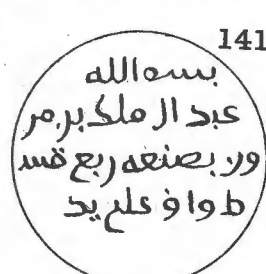 141
بسم الله
عبد ال ملك بن مر
ون بصنعه ربع قس
ط واف على يد